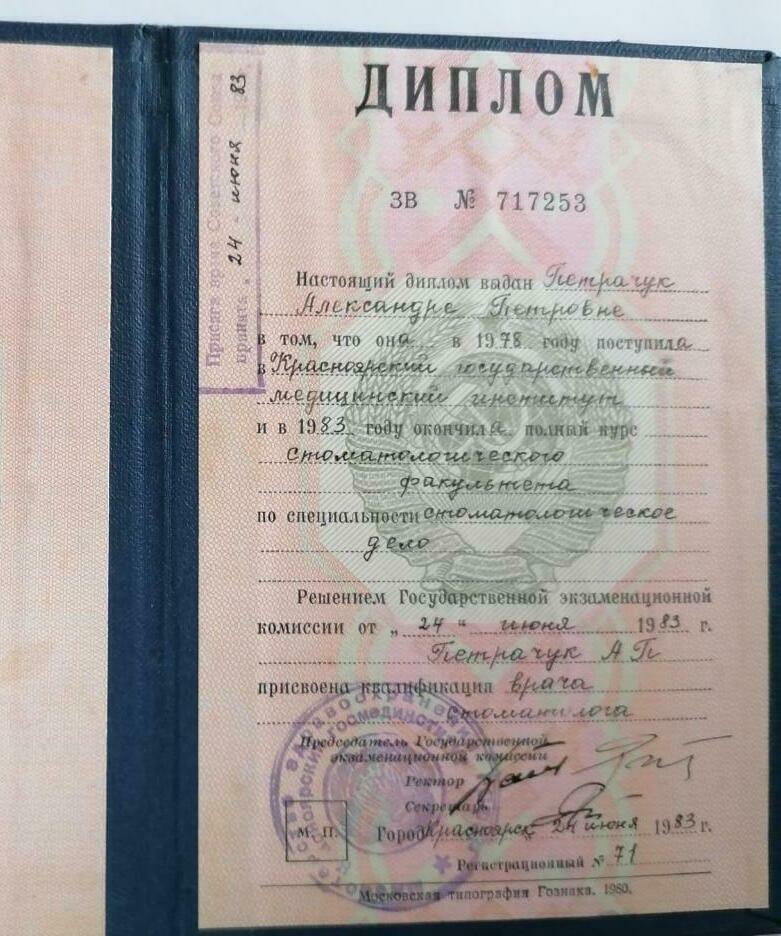 ДИПЛОМ
ЗВ № 717253
Присяга врача Советского Союза
принята „24 - июня 83
Настоящий диплом выдан Петрачук
Александре Петровне
в том, что она в 1978 году поступила
в Красноярский государственный
медицинский институт
и в 1983 году окончила полный курс
стоматологического
факультета
по специальности стоматологическое
дело
Решением Государственной экзаменационной
комиссии от „24“ июня 1983 г.
Петрачук А П
присвоена квалификация врача
стоматолога
Председатель Государственной
экзаменационной комиссии
Ректор
Секретарь
М. П.
Город Красноярск „24 июня 1983 г.
Регистрационный № 71
Московская типография Гознака. 1980.